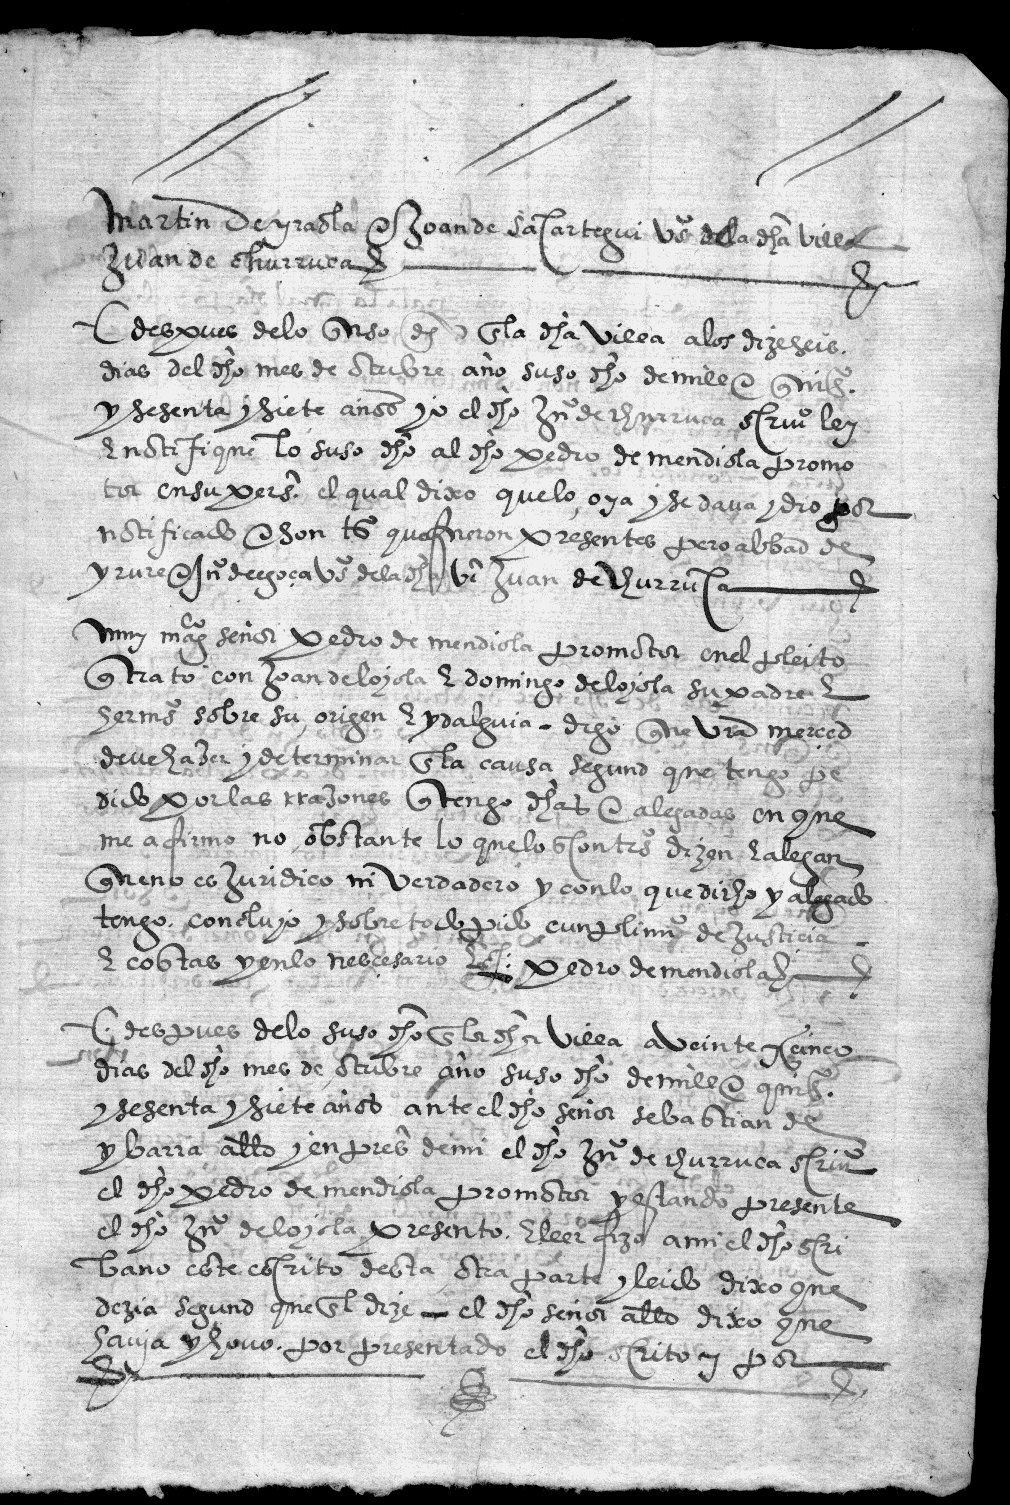 martin de yraola e Joan de saLartegui vs dela dha villa
Juan de churruca
E despues delo suso dho enla dha villa alos dizeseis
dias del dho mes de otubre año suso dho de mill e quios
y sesenta y siete años yo el dho Jn de churruca escriuo ley
E notifique lo suso dho al dho pedro de mendiola promo
tor en su pers. el qual dixo que lo oya y se dava y dio por
notificado e son ts que fueron presentes pero abbad de
yrure e Jn de egoça vs dela dha va Juan de churruca
muy magco señor pedro de mendiola promotor enel pleito
que trato con Joan de loyola E domingo de loyola su padre E
hermos sobre su origen E ydalguia - digo que vra merced
deve hazer y determinar esta causa segund que tengo pe
dido por las rrazones que tengo dhas e alegadas en que
me afirmo no obstante lo que los contros dizen E alegan
que no es Juridico ni verdadero y con lo que dicho y alegado
tengo. concluyo y sobre todo pido cunplimio de Justicia
E costas y en lo nescesario pedro de mendiola
E despues delo suso dho enla dha villa a veinte y cinco
dias del dho mes de otubre año suso dho de mill e quios.
y sesenta y siete años ante el dho señor sebastian de
ybarra allo y en pres de mi el dho Jn de churruca escriuo
el dho pedro de mendiola promotor y estando presente
el dho Jn de loyola presento. E leer fizo a mi el dho escri
bano este escrito desta otra parte y leido dixo que
dezia segund que enel dize - el dho señor allo dixo que
havia y hovo. por presentado el dho escrito y por